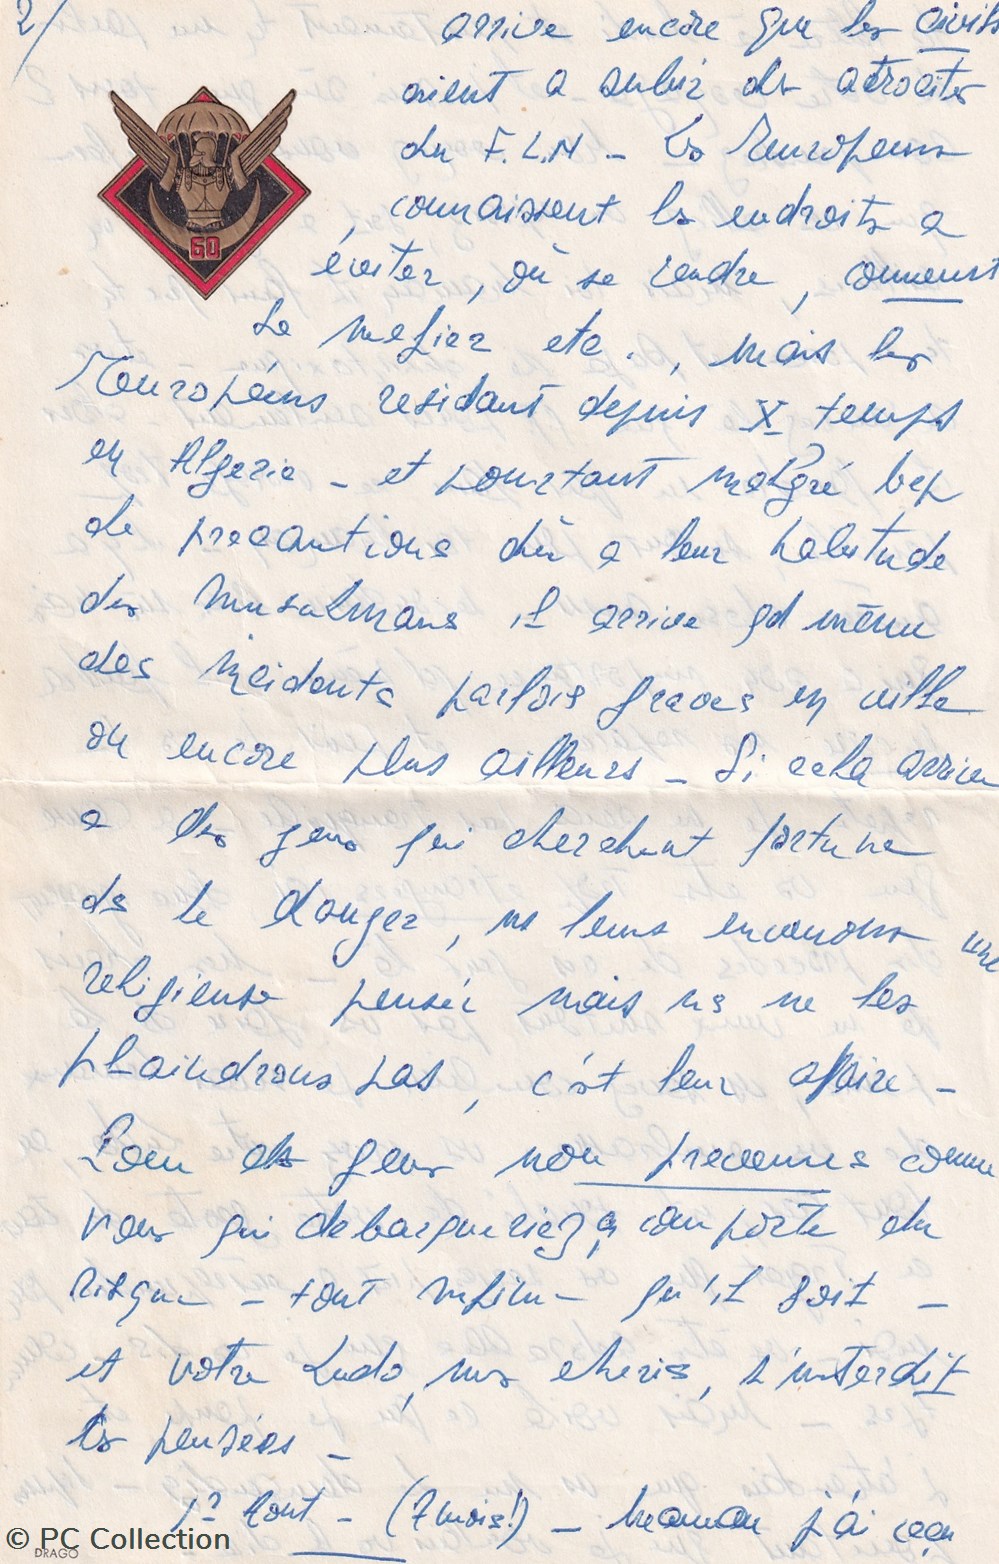 2/
arrive encore que les civils
aient a subir des atrocites
du F.L.N - Les Européens
connaissent les endroits a
éviter, où se rendre, comment
se mefier etc., mais les
Européens residant depuis X temps
en Algerie - et pourtant malgré bcp
de precautions dûes a leur habitude
des Musulmans il arrive qd même
des incidents parfois graves en ville
ou encore plus ailleurs - Si cela arrive
a des gens qui cherchent fortune
ds le danger, ns leurs envoyons une
religieuse pensée mais ns ne les
plaindrons pas, c'est leur affaire -
Pour des gens non prevenus comme
vous qui debarqueriez, ça comporte du
risque - tout infime qu'il soit -
et votre Ludo, mes cheris, s'interdit
les pensées -
1° Aout - (7 mois!) - Maman j'ai reçu
60
© PC Collection
DRAGO